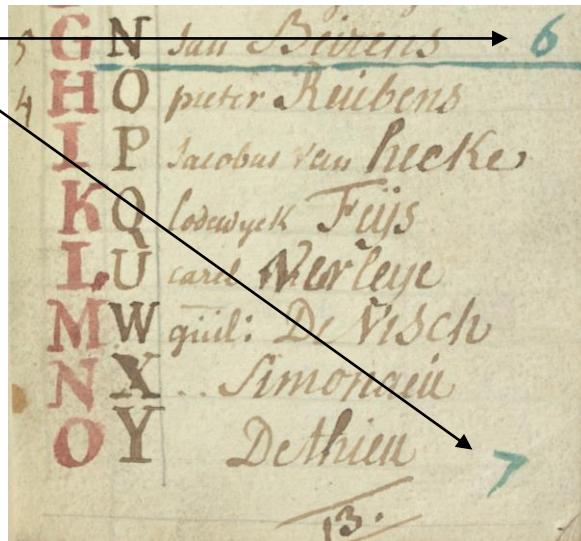 5 G N Jan Beirens 6
4 H O pieter Reubens
I P Jacobus van hecke
K Q lodewyck Feijs
L U carel Verleye
M W guil: De Visch
N X .. Simonaeu
O Y Dethieu 7
13.